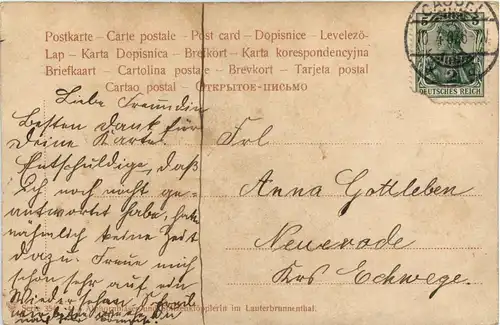 Postkarte – Carte postale – Post card – Dopisnice – Levelező-
Lap – Karta Dopisnica – Brefkort – Karta korespondencyjna
Briefkaart – Cartolina postale – Brevkort – Tarjeta postal
Cartao postal – Открытое-письмо
CASSEL
DEUTSCHES REICH
Liebe Freundin
Besten Dank für
Deine Karte.
Entschuldige, daß
ich noch nicht ge-
antwortet habe, hab
nämlich keine Zeit
dazu. Freue mich
schon sehr auf ein
Wiedersehen. Schreib
Frl
Anna Gottleben
Neuerode
Krs Eschwege.
im Lauterbrunnenthal.